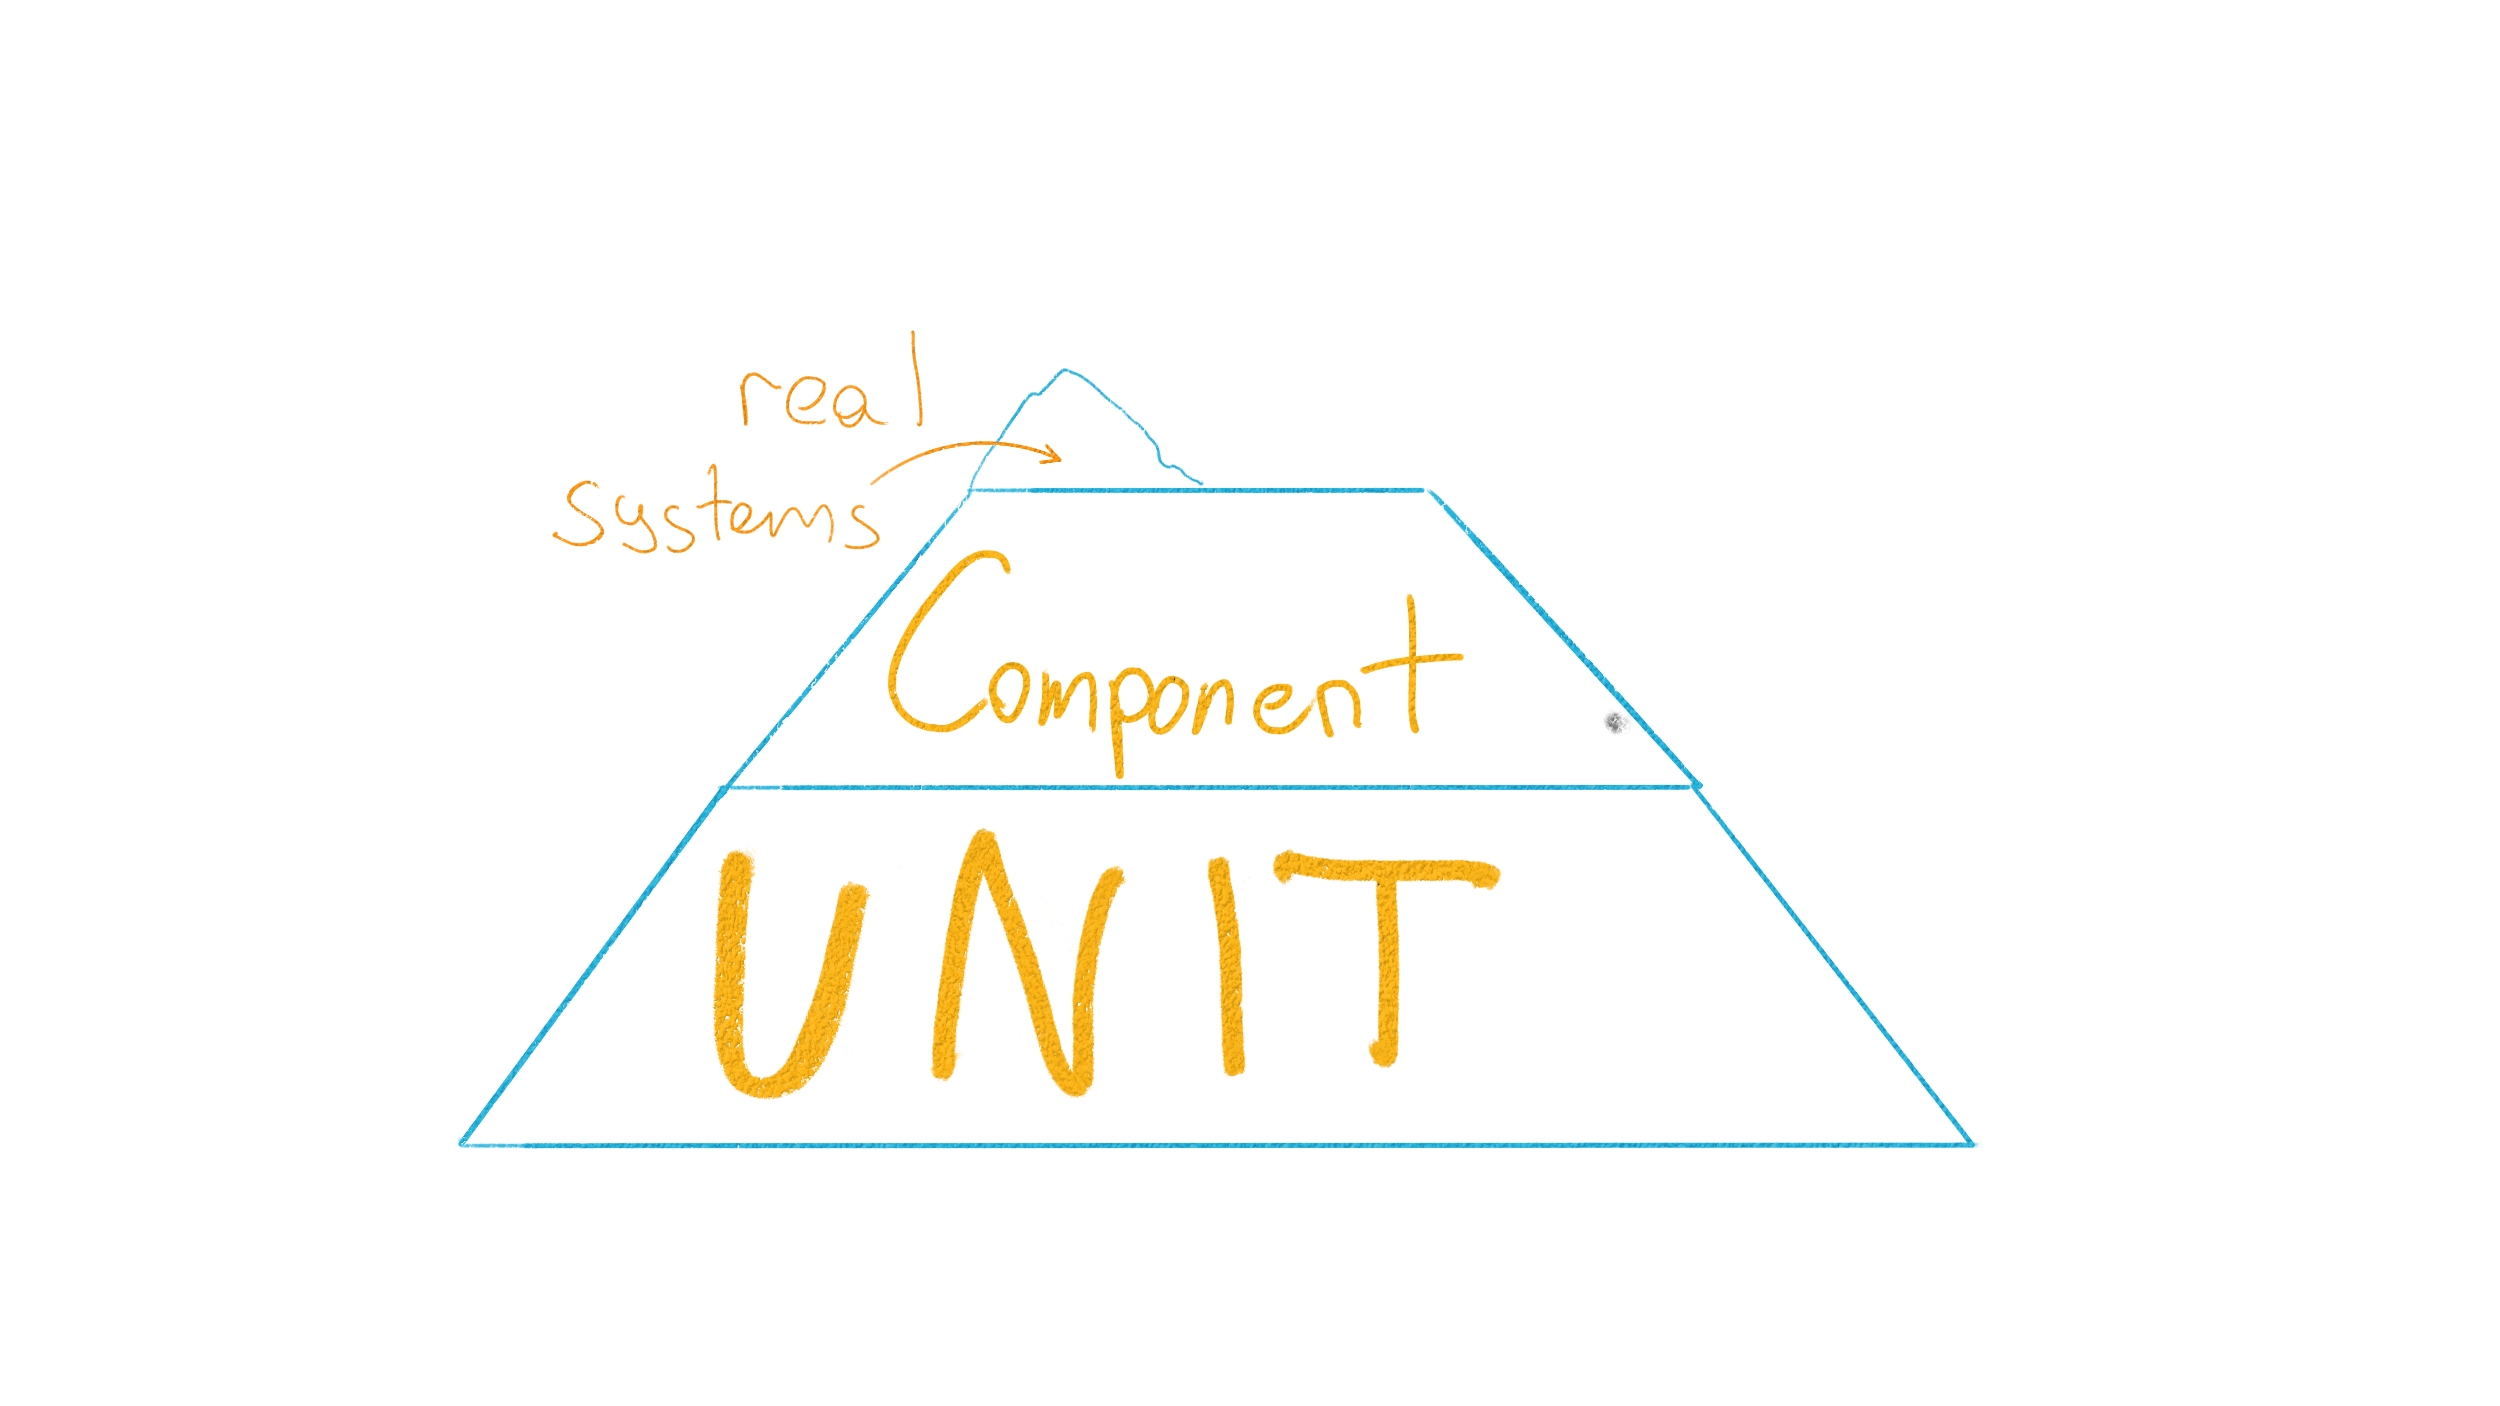 real
systems
Component
UNIT